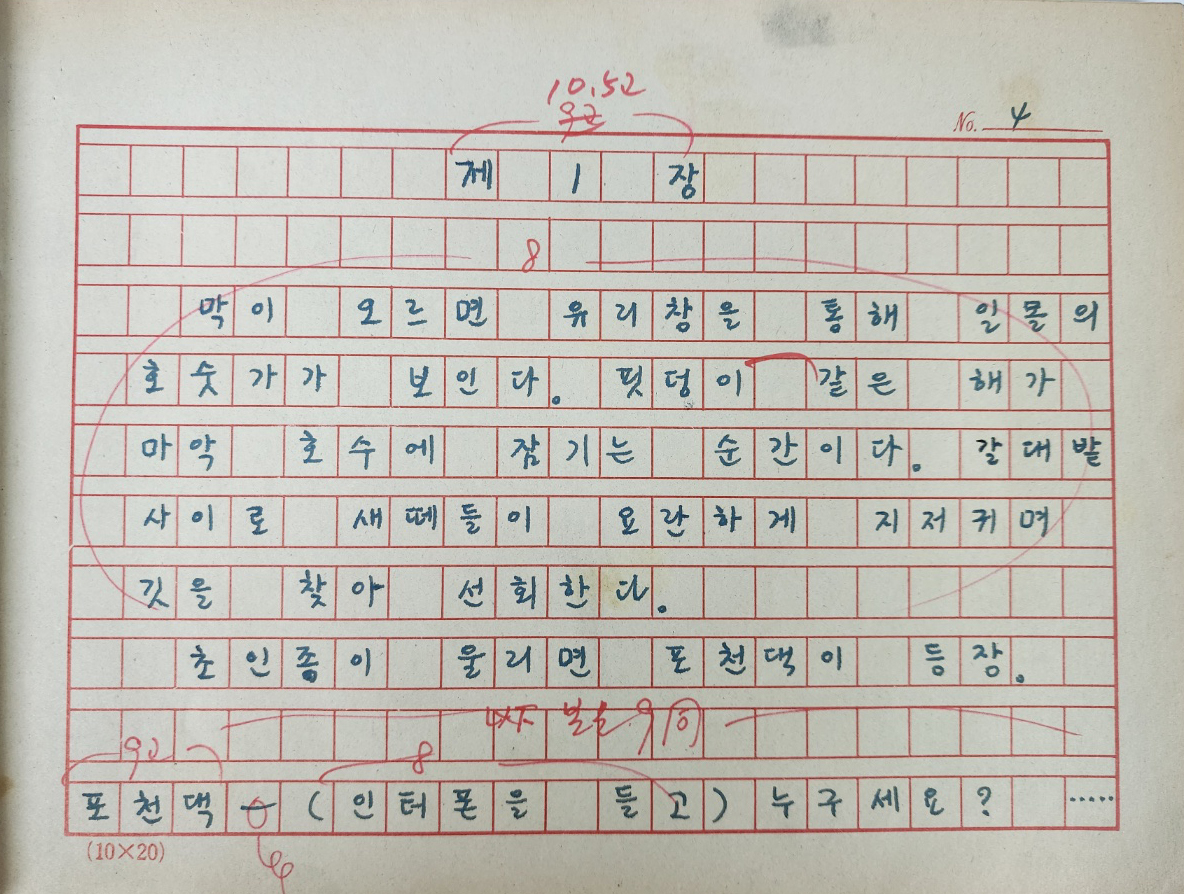 10.52
No. 4
제 1 장
8
막이 오르면 유리창을 통해 일몰의
호숫가가 보인다. 핏덩이 같은 해가
마악 호수에 잠기는 순간이다. 갈대밭
사이로 새떼들이 요란하게 지저귀며
깃을 찾아 선회한다.
초인종이 울리면 포천댁이 등장.
8
포천댁 ― (인터폰을 들고) 누구세요? ……
(10×20)